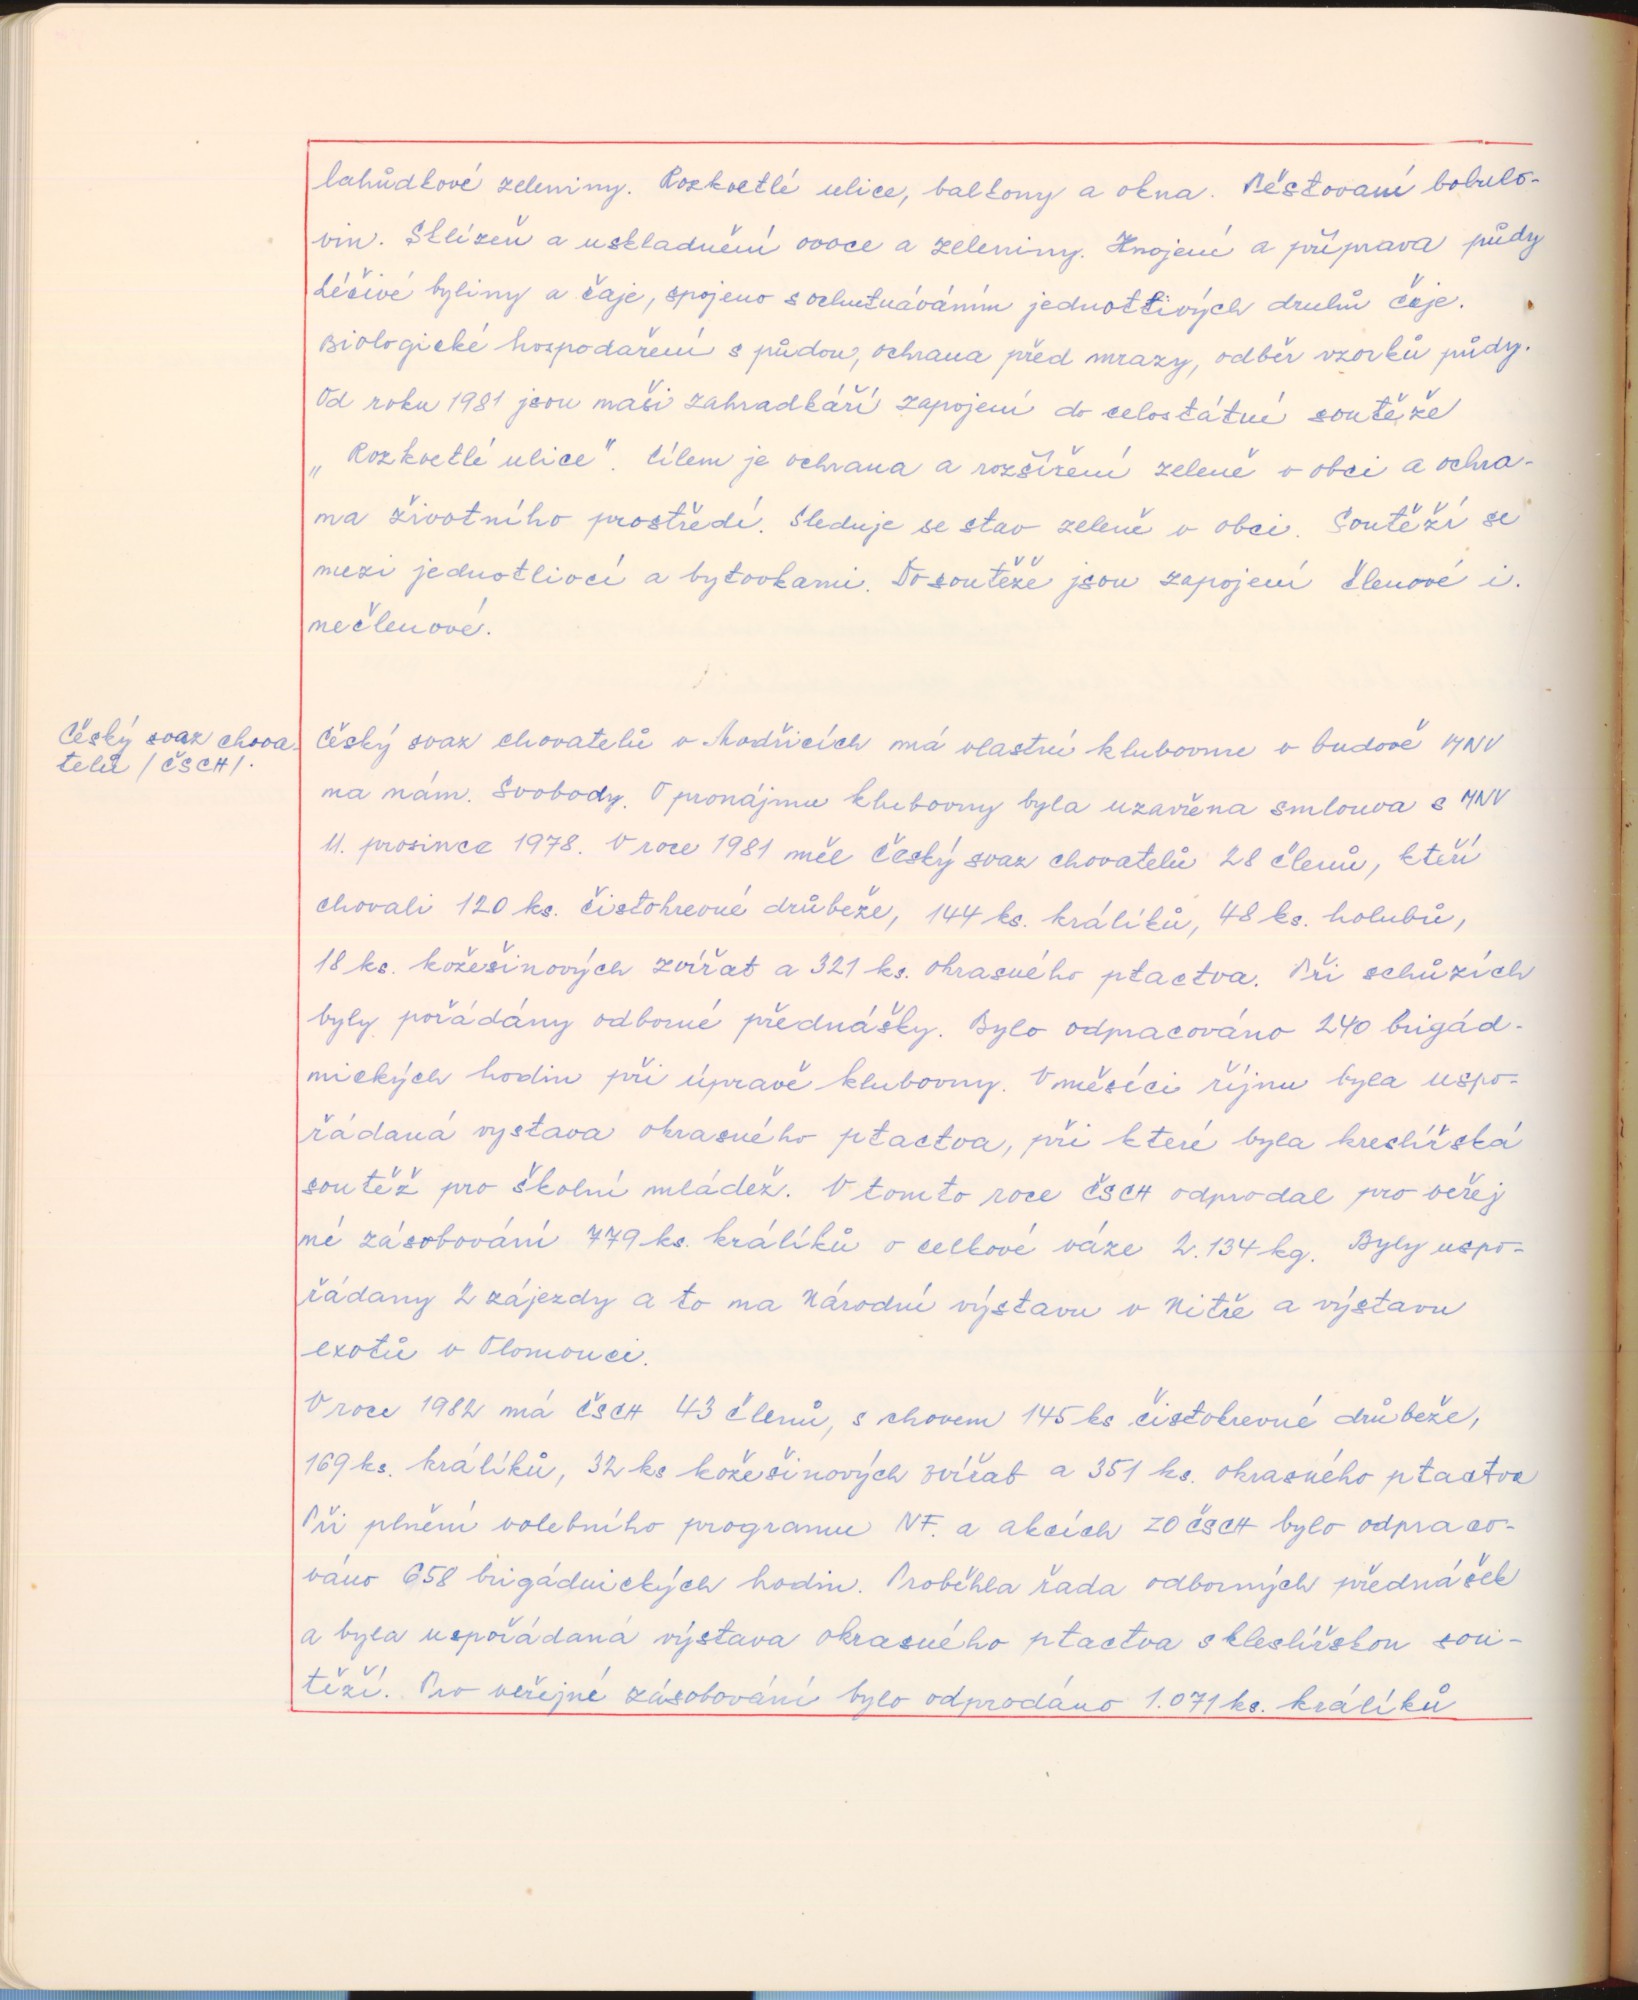 lahůdkové zeleniny. Rozkvetlé ulice, balkony a okna. Pěstovaní bobulo-
vin. Sklizeň a uskladnění ovoce a zeleniny. Hnojení a příprava půdy
Léčivé byliny a čaje, spojeno s ochutnáváním jednotlivých druhů čaje.
Biologické hospodaření s půdou, ochrana před mrazy, odběr vzorků půdy.
Od roku 1981 jsou naši zahradkáří zapojení do celostátní soutěže
„Rozkvetlé ulice". Cílem je ochrana a rozšíření zeleně v obci a ochra-
na životního prostředí. Sleduje se stav zeleně v obci. Soutěží se
mezi jednotlivci a bytovkami. Do soutěže jsou zapojení členové i.
nečlenové.
Český svaz chova-
telů /ČSCH/.
Český svaz chovatelů v Modřicích má vlastní klubovnu v budově MNV
na nám. Svobody. O pronájmu klubovny byla uzavřena smlouva s MNV
11. prosince 1978. V roce 1981 měl Český svaz chovatelů 28 členů, kteří
chovali 120 ks. čistokrevné drůbeže, 144 ks. králíků, 48 ks. holubů,
18 ks. kožešinových zvířat a 321 ks. okrasného ptactva. Při schůzích
byly pořádány odborné přednášky. Bylo odpracováno 240 brigád-
nických hodin při úpravě klubovny. V měsíci říjnu byla uspo-
řádaná vystava okrasného ptactva, při které byla kreslířská
soutěž pro školní mládež. V tomto roce ČSCH odprodal pro veřej
né zásobování 779 ks. králíků o celkové váze 2.134 kg. Byly uspo-
řádany 2 zájezdy a to na Národní výstavu v Nitře a výstavu
exotů v Olomouci.
V roce 1982 má ČSCH 43 členů, s chovem 145 ks čistokrevné drůbeže,
169 ks. králíků, 32 ks kožešinových zvířat a 351 ks. okrasného ptactva
Při plnění volebního programu NF. a akcích ZO ČSCH bylo odpraco-
váno 658 brigádnických hodin. Proběhla řada odborných přednášek
a byla uspořádaná výstava okrasného ptactva s kleslířskou sou-
těží. Pro veřejné zásobování bylo odprodáno 1.071 ks. králíků